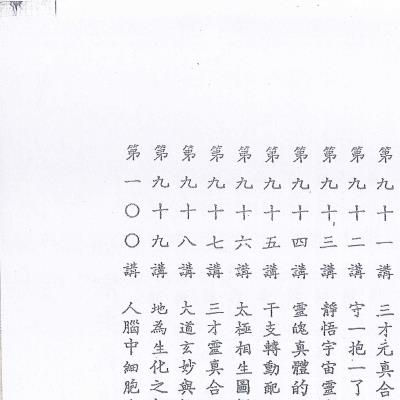 第九十一講 三才元真合
第九十二講 守一抱一了
第九十三講 靜悟宇宙靈
第九十四講 靈魄真體的
第九十五講 干支轉動配
第九十六講 太極相生圖
第九十七講 三才靈真合
第九十八講 大道玄妙與
第九十九講 地為生化之
第一〇〇講 人腦中細胞